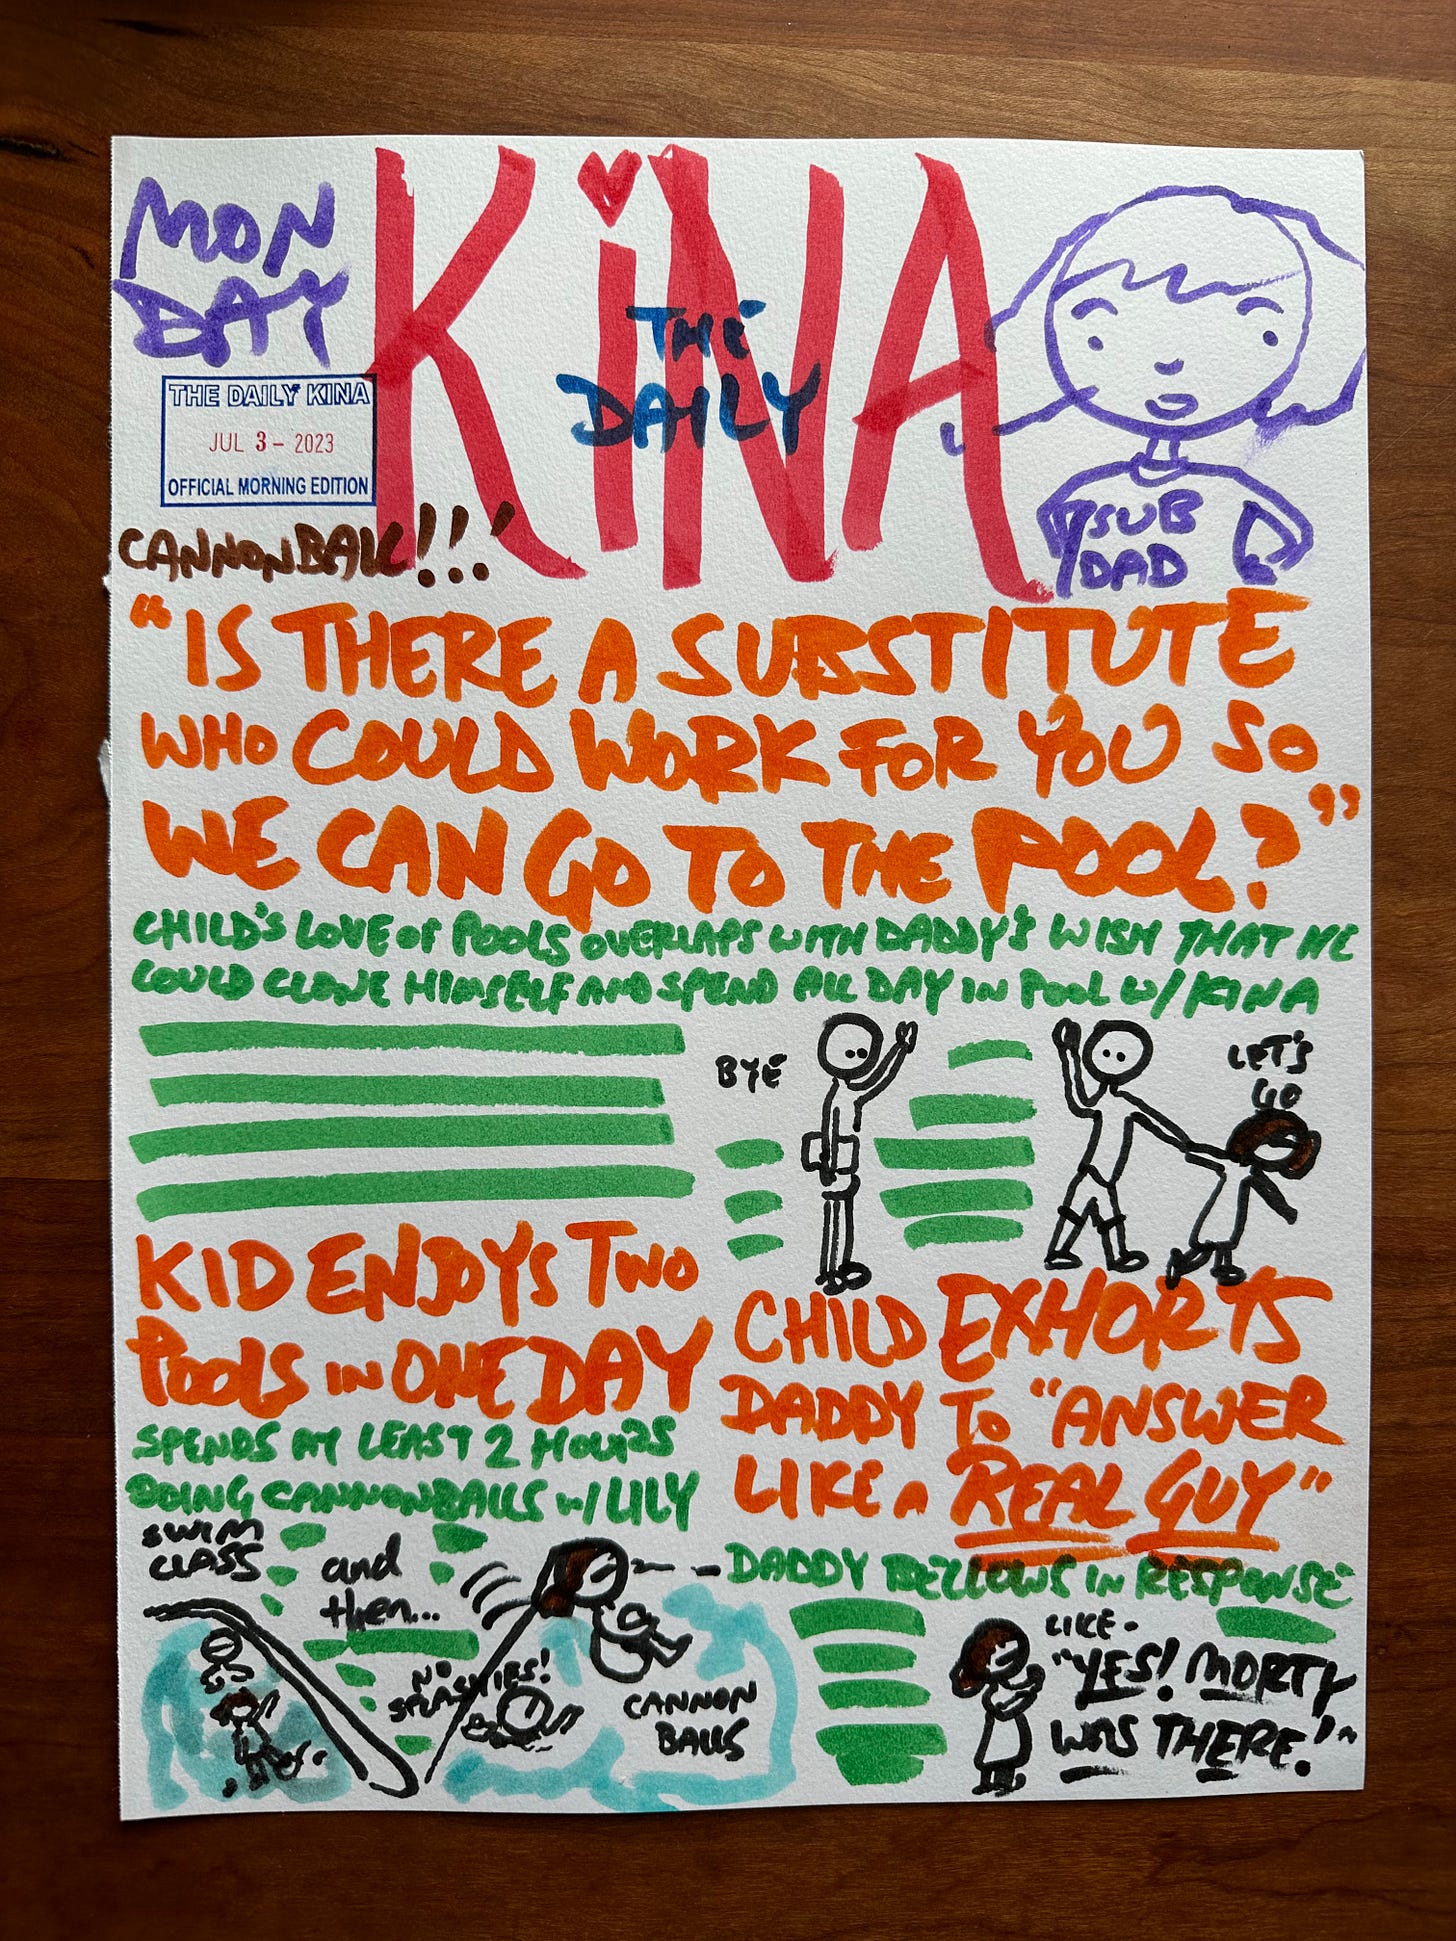 MON
DAY
KiNA
THE
DAILY
THE DAILY KINA
JUL 3 - 2023
OFFICIAL MORNING EDITION
CANNONBALL!!!
SUB
DAD
"IS THERE A SUBSTITUTE
WHO COULD WORK FOR YOU SO
WE CAN GO TO THE POOL?"
CHILD'S LOVE OF POOLS OVERLAPS WITH DADDY'S WISH THAT HE
COULD CLONE HIMSELF AND SPEND ALL DAY IN POOL W/ KINA
BYE
LET'S
GO
KID ENJOYS TWO
POOLS IN ONE DAY
SPENDS AT LEAST 2 HOURS
DOING CANNONBALLS W/ LILY
SWIM
CLASS
and
then...
NO
SPLASHIES!
CANNON
BALLS
CHILD EXHORTS
DADDY TO "ANSWER
LIKE A REAL GUY"
DADDY BELLOWS IN RESPONSE
LIKE -
"YES! MORTY
WAS THERE!"